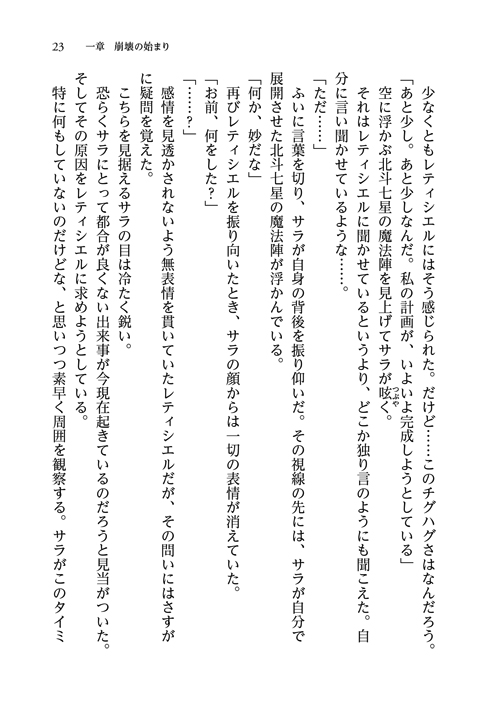 23　一章　崩壊の始まり
少なくともレティシエルにはそう感じられた。だけど……このチグハグさはなんだろう。
「あと少し。あと少しなんだ。私の計画が、いよいよ完成しようとしている」
空に浮かぶ北斗七星の魔法陣を見上げてサラが呟く。
つぶや
それはレティシエルに聞かせているというより、どこか独り言のようにも聞こえた。自
分に言い聞かせているような……。
「ただ……」
ふいに言葉を切り、サラが自身の背後を振り仰いだ。その視線の先には、サラが自分で
展開させた北斗七星の魔法陣が浮かんでいる。
「何か、妙だな」
再びレティシエルを振り向いたとき、サラの顔からは一切の表情が消えていた。
「お前、何をした？」
「……？」
感情を見透かされないよう無表情を貫いていたレティシエルだが、その問いにはさすが
に疑問を覚えた。
こちらを見据えるサラの目は冷たく鋭い。
恐らくサラにとって都合が良くない出来事が今現在起きているのだろうと見当がついた。
そしてその原因をレティシエルに求めようとしている。
特に何もしていないのだけどな、と思いつつ素早く周囲を観察する。サラがこのタイミ